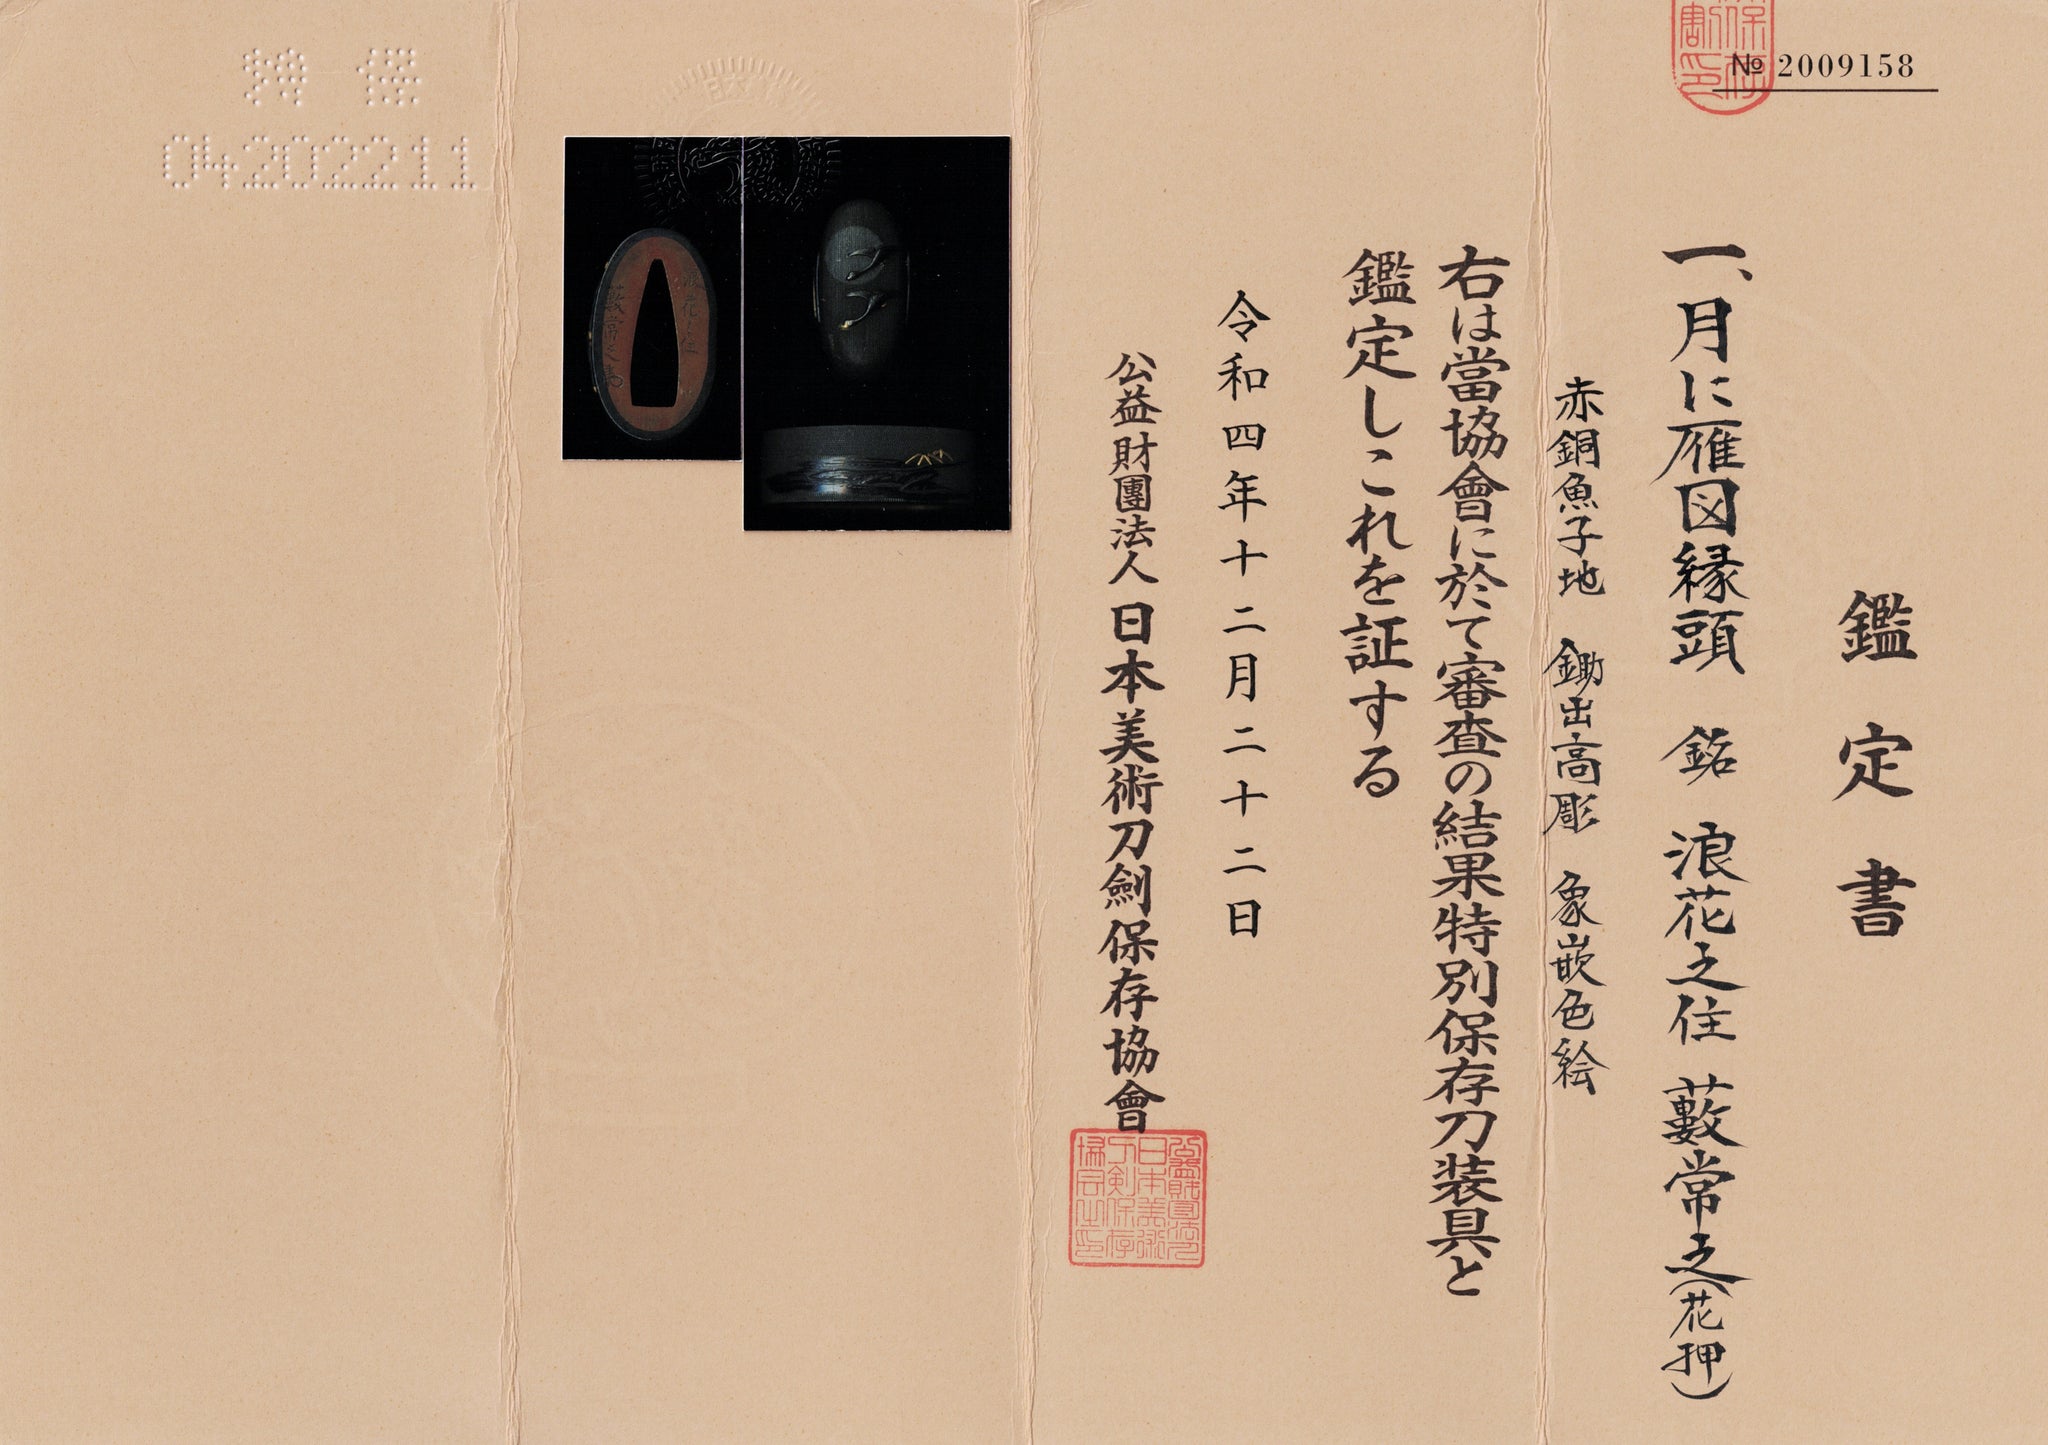 № 2009158
鑑定書
一、月に雁図縁頭 銘 浪花之住 藪常之(花押)
赤銅魚子地 鋤出高彫 象嵌色絵
右は當協會に於て審査の結果特別保存刀装具と
鑑定しこれを証する
令和四年十二月二十二日
公益財團法人 日本美術刀劍保存協會
04202211